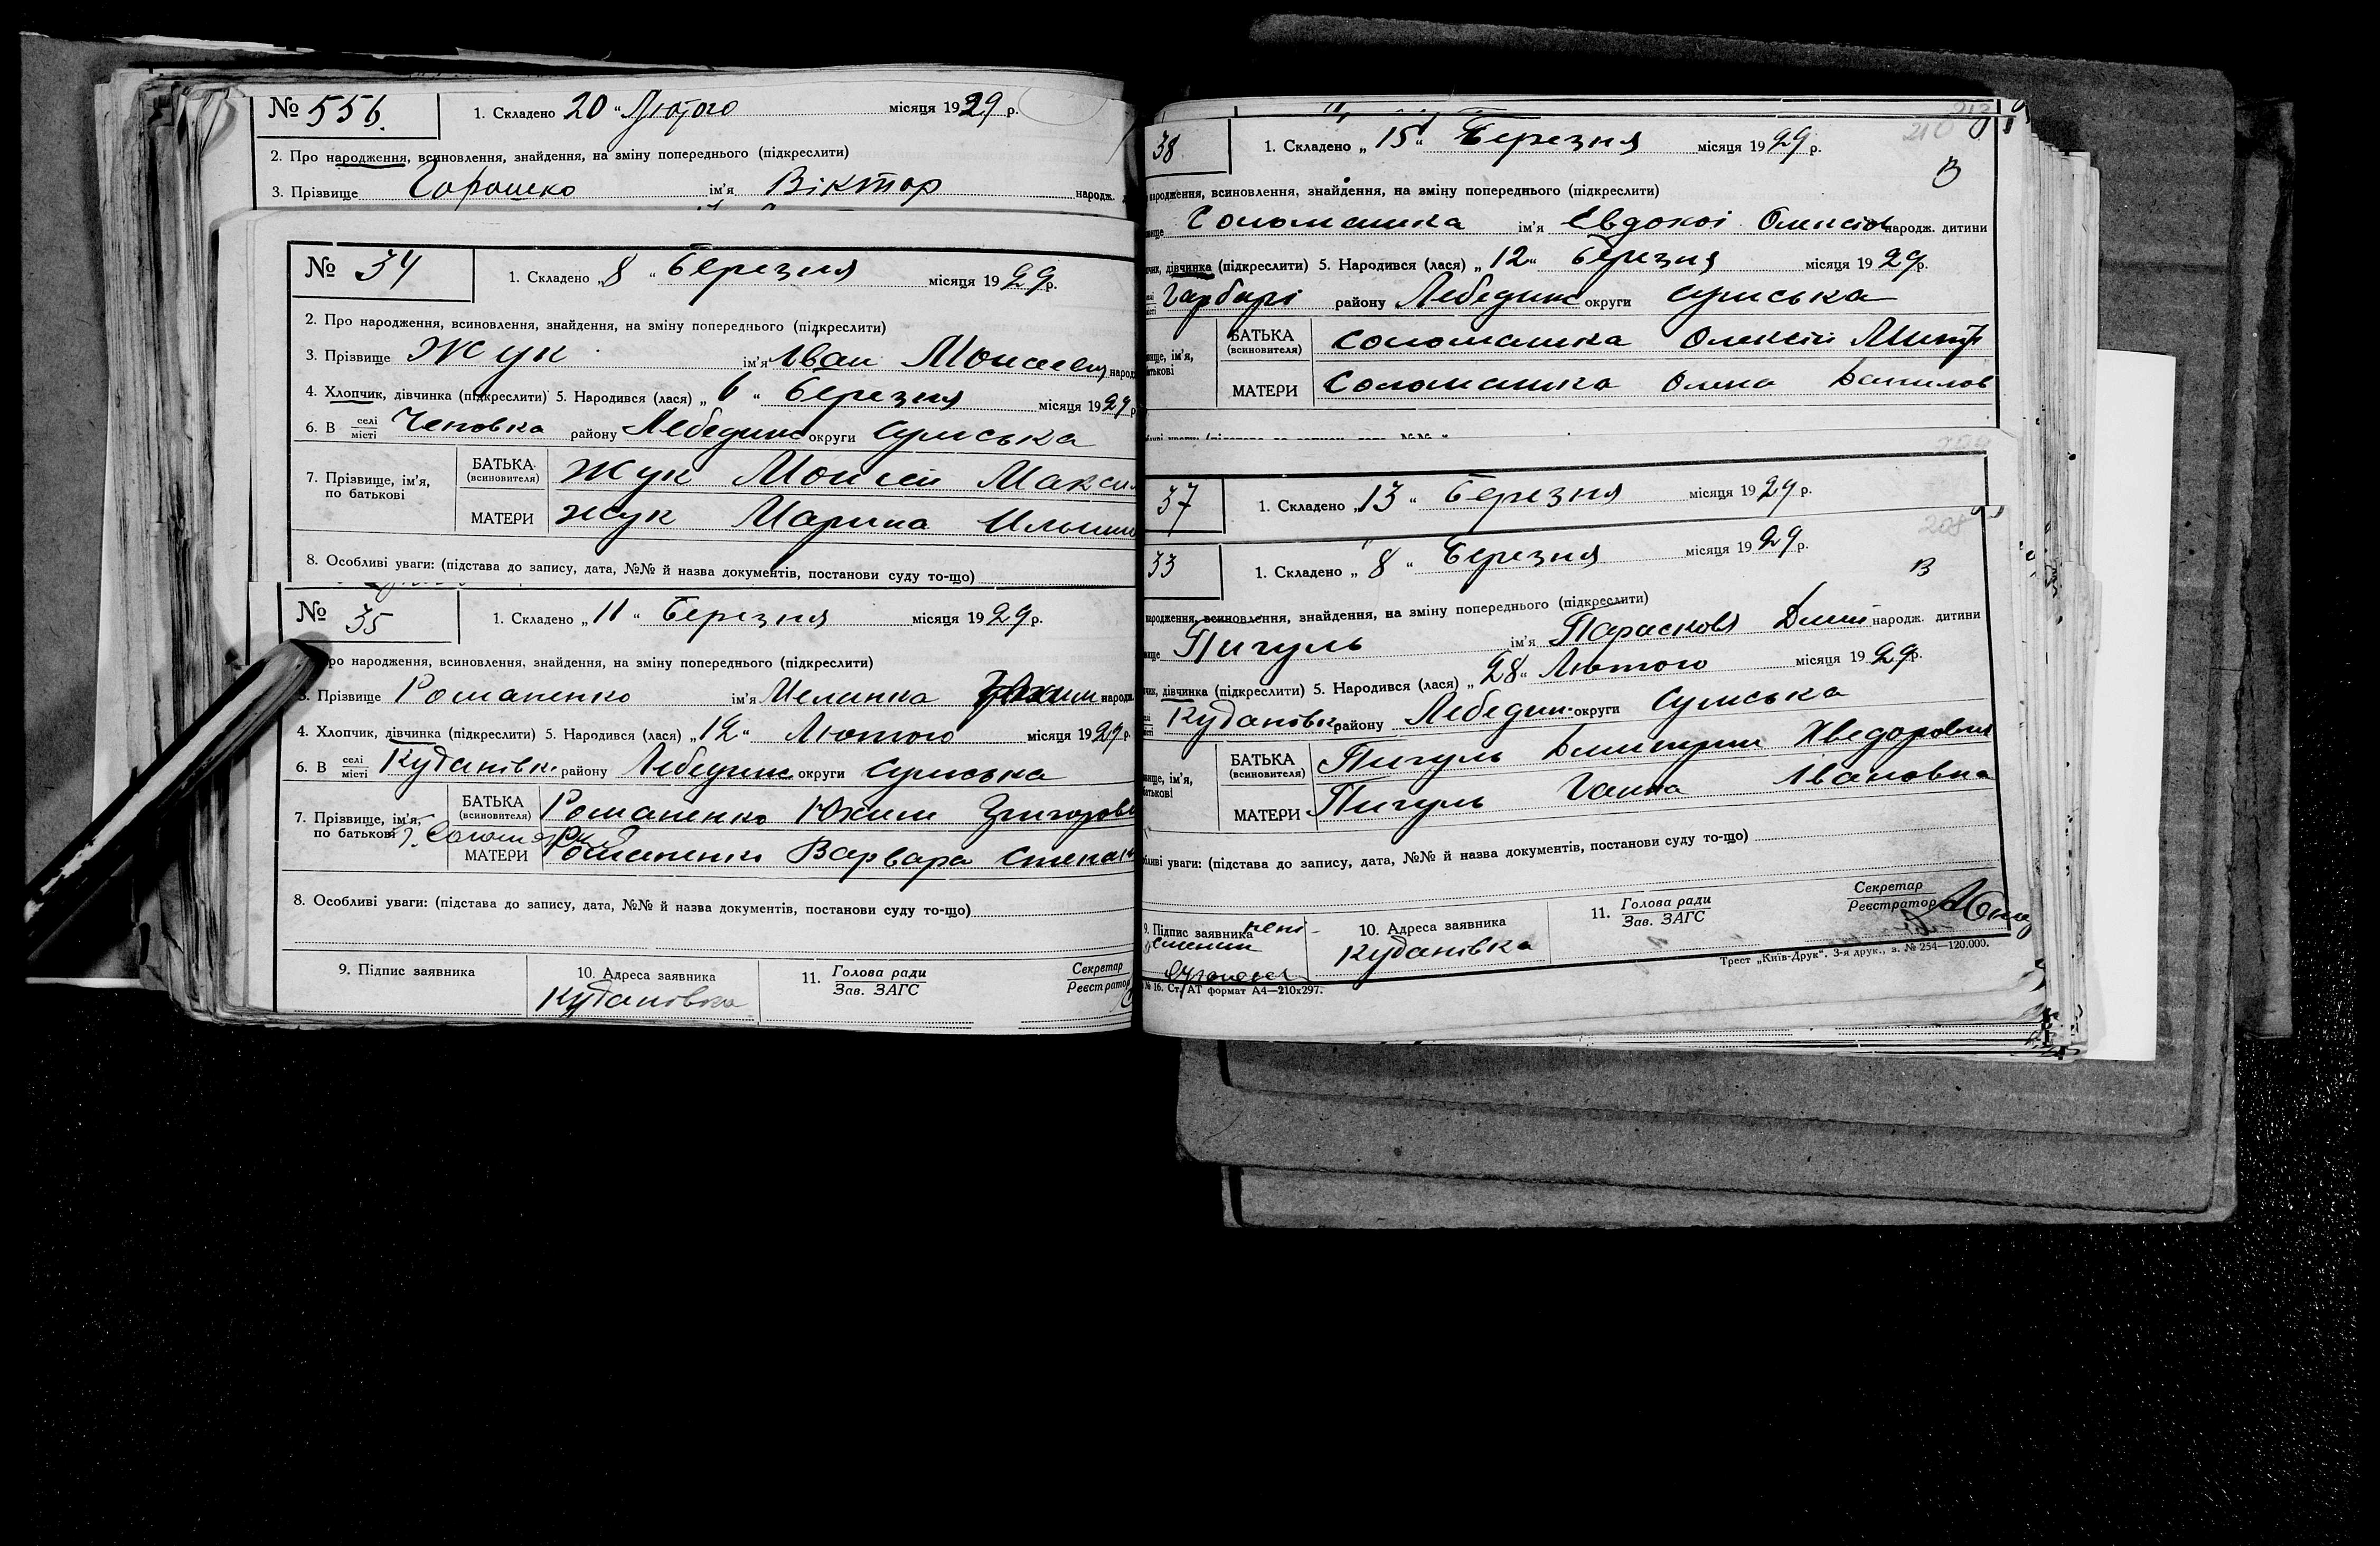 № 556. 1. Складено 20 " Лютого місяця 1929 р.
2. Про народження, всиновлення, знайдення, на зміну попереднього (підкреслити)
3. Прізвище Горошко ім'я Віктор народж.
№ 34 1. Складено „ 8 " Березня місяця 1929 р.
2. Про народження, всиновлення, знайдення, на зміну попереднього (підкреслити)
3. Прізвище Жук ім'я Іван Моисеев народ
4. Хлопчик, дівчинка (підкреслити) 5. Народився (лася) „ 6 " Березня місяця 1929 р
6. В селі місті района Лебединс округи Сумська
7. Прізвище, ім'я, по батькові БАТЬКА (всиновителя) Жук Моисей Макси
МАТЕРИ Жук Марина
8. Особливі уваги: (підстава до запису, дата, №№ й назва документів, постанови суду то-що)
№ 35 1. Складено „ 11 " Березня місяця 1929 р.
ро народження, всиновлення, знайдення, на зміну попереднього (підкреслити)
3. Прізвище Романенко ім'я Меланка народж
4. Хлопчик, дівчинка (підкреслити) 5. Народився (лася) „ 12 " Лютого місяця 1929 р.
6. В селі місті Кудановк. району Лебединс. округи Сумська
7. Прізвище, ім'я, по батькові БАТЬКА (всиновителя) Романенко Юхим Григорове
МАТЕРИ Романенко Варвара Степан
8. Особливі уваги: (підстава до запису, дата, №№ й назва документів, постанови суду то-що)
9. Підпис заявника 10. Адреса заявника 11. Голова ради Зав. ЗАГС Секретар Реєстратор
Кудановка
38 1. Складено „ 15 " Березня місяця 1929 р.
210
В
народження, всиновлення, знайдення, на зміну попереднього (підкреслити)
вище Соломашка ім'я Евдокоі Олексіов народж. дитини
чик, дівчинка (підкреслити) 5. Народився (лася) „ 12 " Березня місяця 1929 р.
Гарбарі району Лебединс округи Сумська
вище, ім'я, батькові БАТЬКА (всиновителя) Соломашка Олексій Митр
МАТЕРИ Соломашка Олена Данилов
37 1. Складено „ 13 " Березня місяця 1929 р.
208
33 1. Складено „ 8 " Березня місяця 1929 р.
В
народження, всиновлення, знайдення, на зміну попереднього (підкреслити)
вище Пигуль ім'я Парасковя Дмит народж. дитини
чик, дівчинка (підкреслити) 5. Народився (лася) „ 28 " Лютого місяця 1929 р.
Кудановк району Лебедин. округи Сумська
вище, ім'я, батькові БАТЬКА (всиновителя) Пигуль Дмитрии Хведорович
МАТЕРИ Пигуль Ганна Івановна
бливі уваги: (підстава до запису, дата, №№ й назва документів, постанови суду то-що)
9. Підпис заявника 10. Адреса заявника 11. Голова ради Зав. ЗАГС Секретар Реєстратор
Кудановка
№ 16. Ст. АТ формат А4—210х297. Трест „Київ-Друк". 3-я друк., з. № 254—120.000.